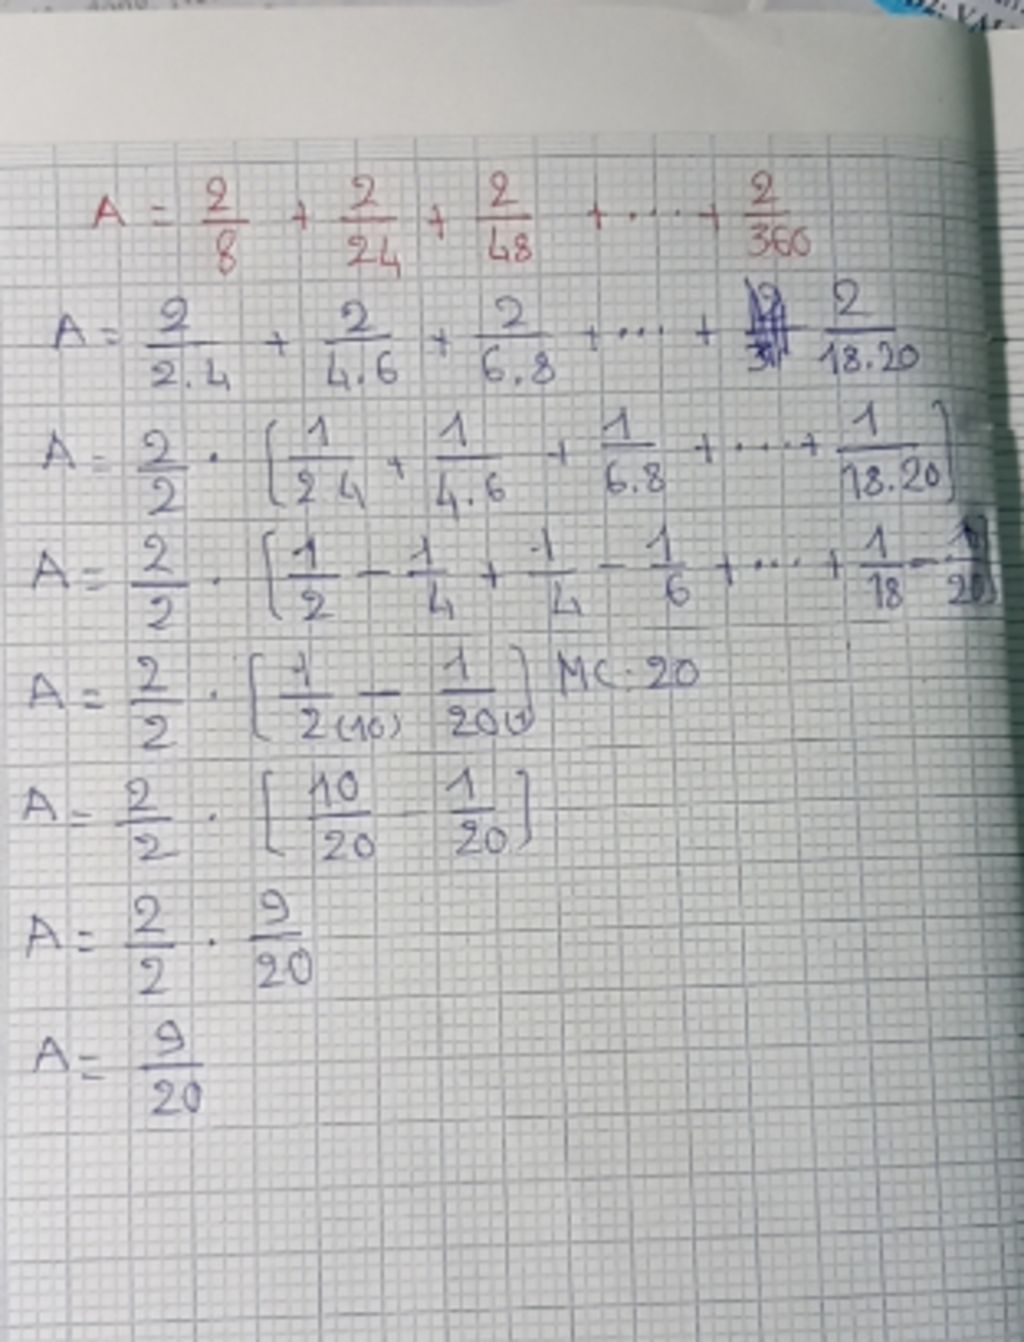 A = 2/8 + 2/24 + 2/48 + .... + 2/360
A = 2/2.4 + 2/4.6 + 2/6.8 + ... + 2/18.20
A = 2/2 . [1/2 4 + 1/4.6 + 1/6.8 + .... + 1/18.20]
A = 2/2 . [1/2 - 1/4 + 1/4 - 1/6 + .... + 1/18 - 1/20]
A = 2/2 . [1/2(10) - 1/20(1)] MC: 20
A = 2/2 . [10/20 - 1/20]
A = 2/2 . 9/20
A = 9/20